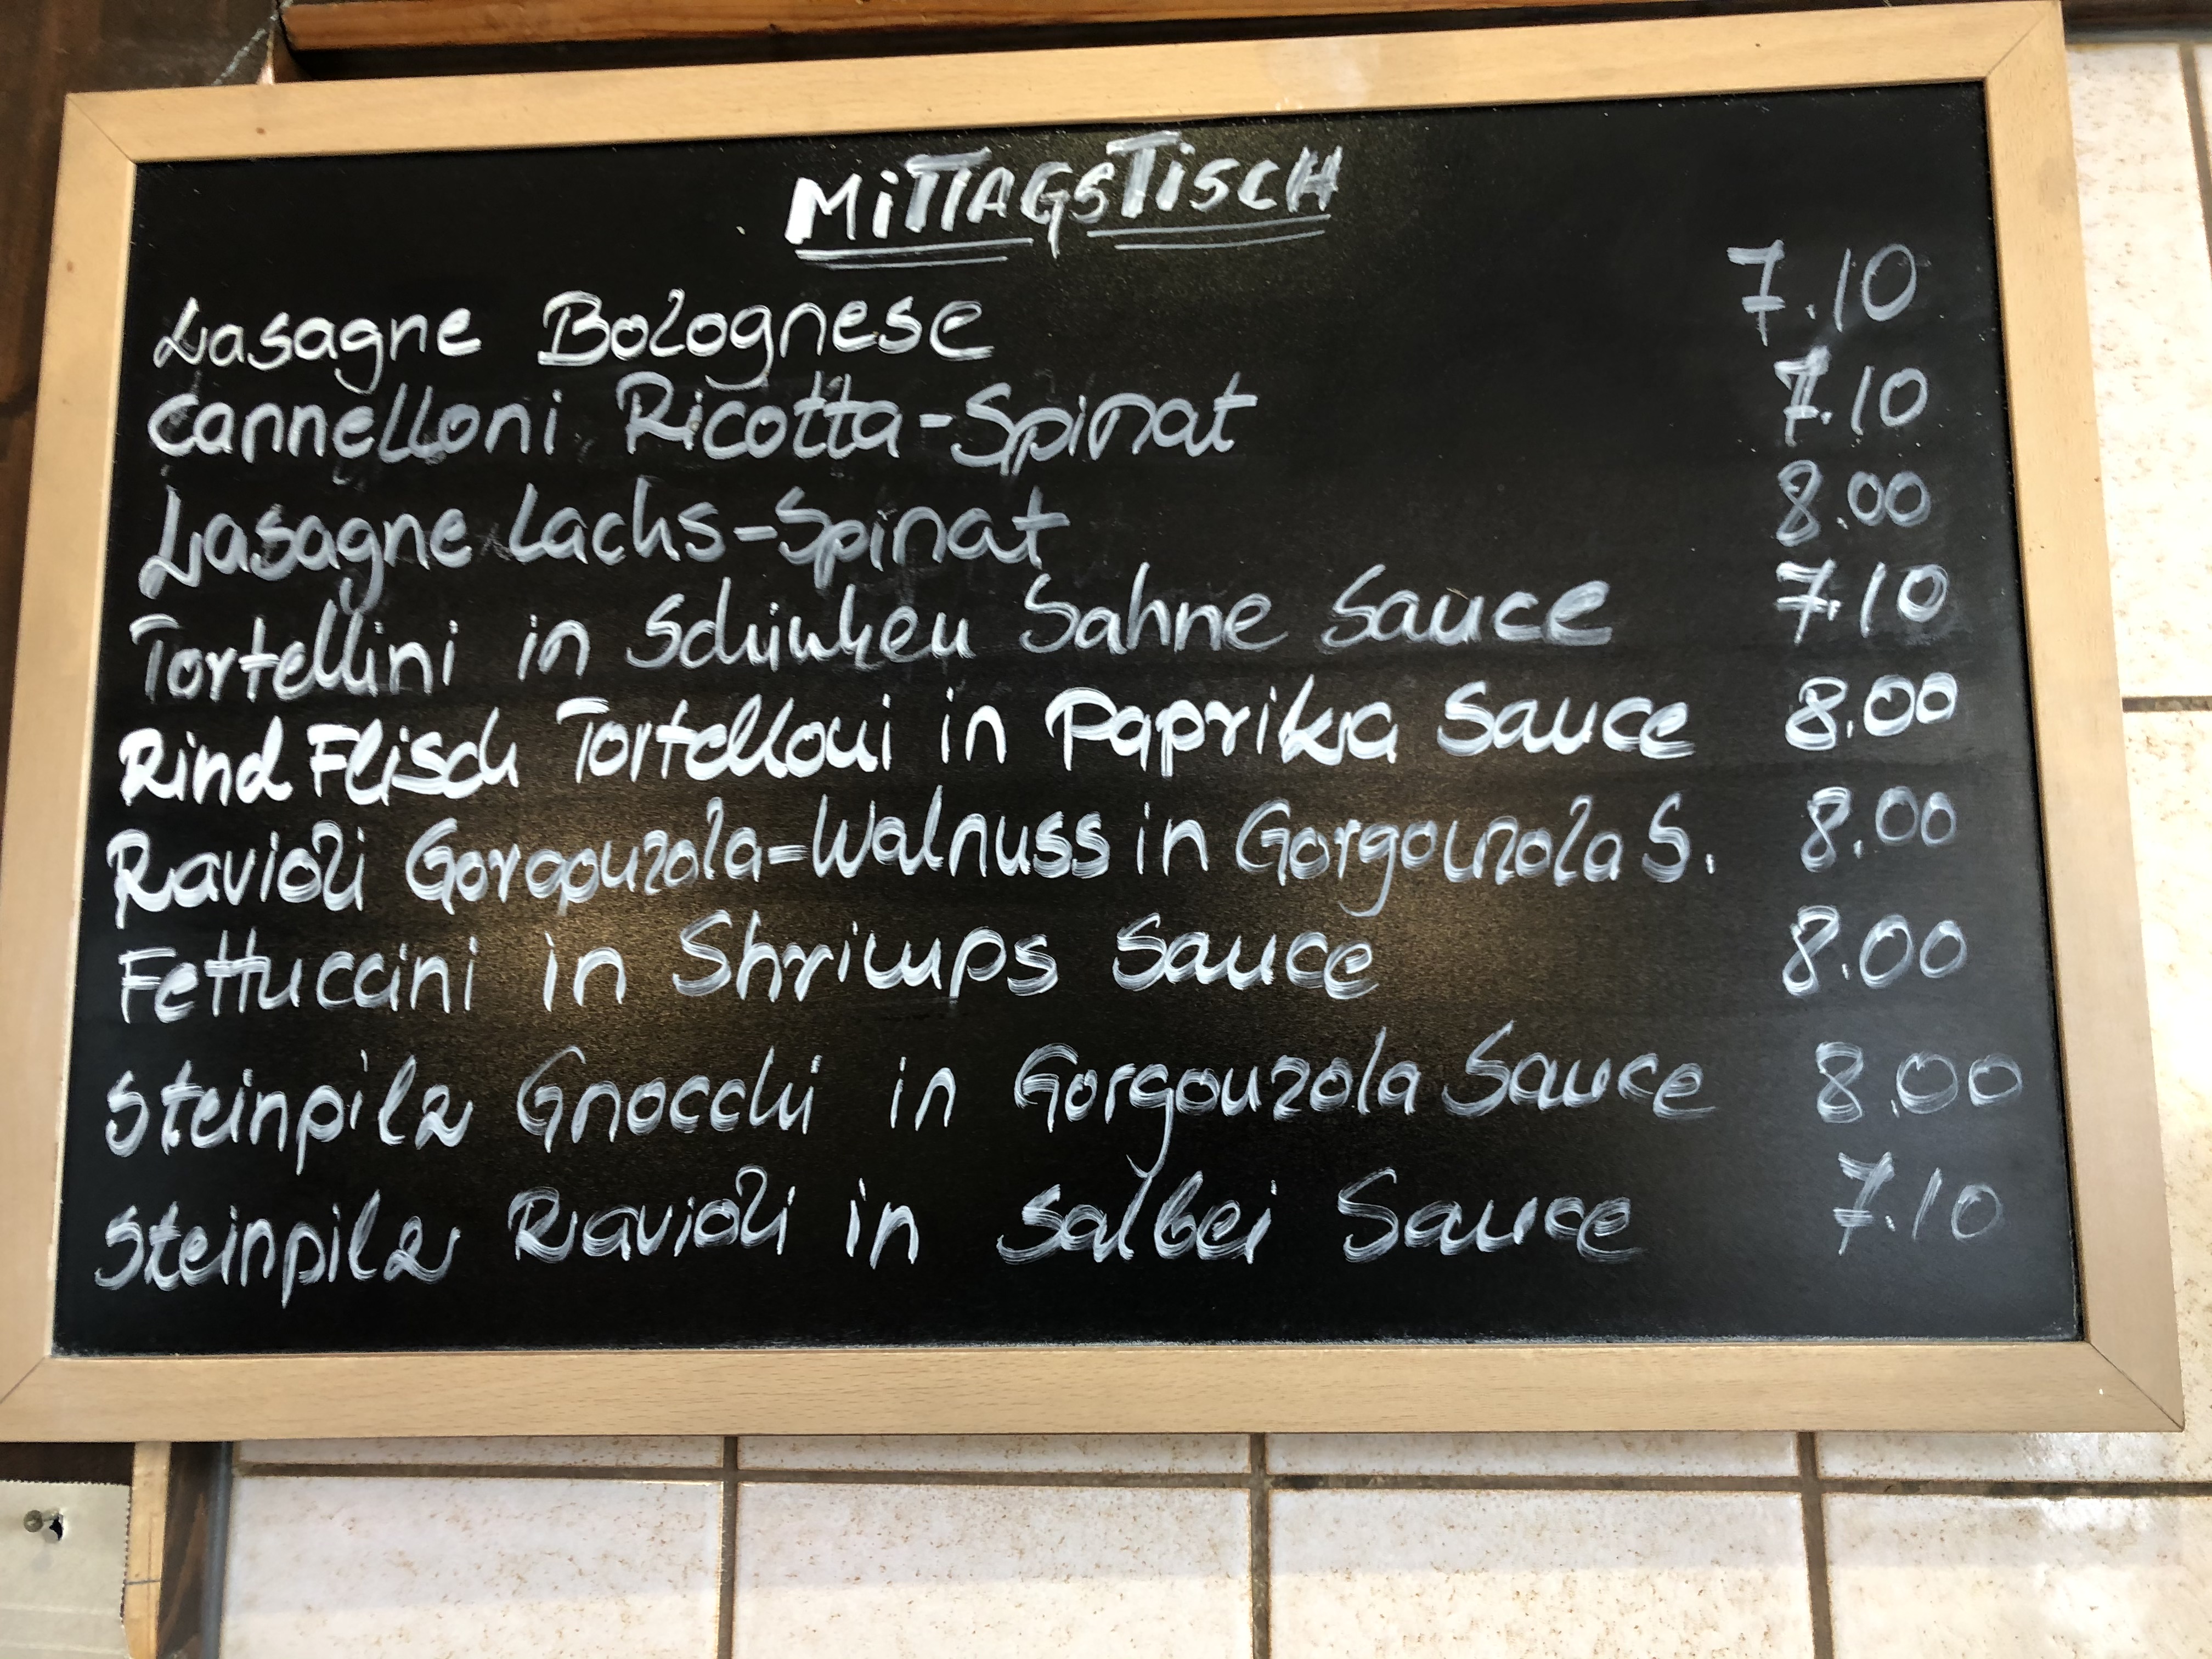 MiTTAGSTiSCH
Lasagne Bolognese 7.10
Cannelloni Ricotta-Spinat 7.10
Lasagne Lachs-Spinat 8.00
Tortellini in Schinken Sahne Sauce 7.10
Rind Fleisch Tortelloni in Paprika Sauce 8.00
Ravioli Gorgonzola-Walnuss in Gorgonzola S. 8.00
Fettuccini in Shrimps Sauce 8.00
Steinpilz Gnocchi in Gorgonzola Sauce 8.00
Steinpilz Ravioli in Salbei Sauce 7.10